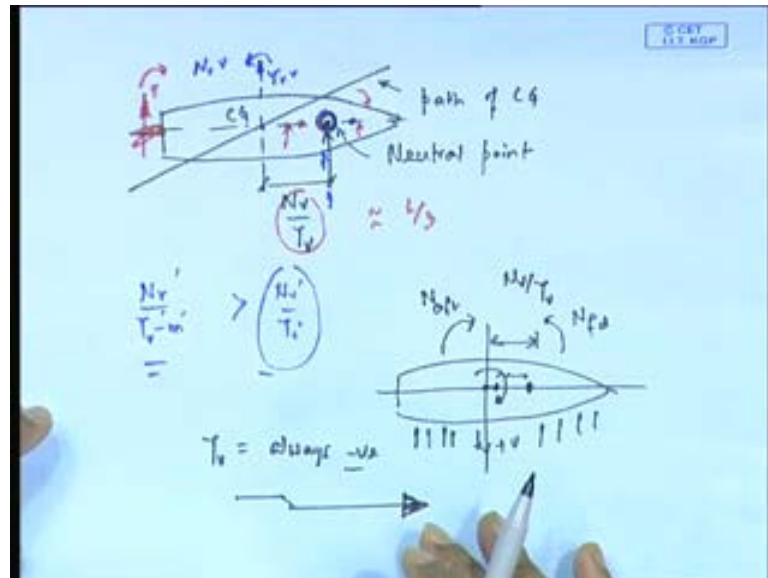 © CET
I.I.T. KGP
Nᵥ v
Yᵥ v
Y
path of CG
CG
Neutral point
Nᵥ
Yᵥ
≈ L/3
Nᵣ'
Yᵣ'-m'
>
Nᵥ'
Yᵥ'
Nᵥ/Yᵥ
+v
Yᵥ = always -ve